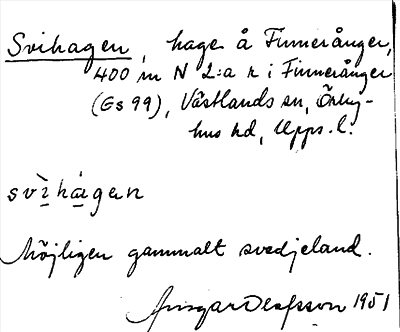 Svihagen, hage å Finnerånger,
400 m N 2:a r i Finnerånger
(Gs 99), Västlands sn, Örby-
hus hd, Upps. l.
svìhágen
Möjligen gammalt svedjeland.
Ansgar Olofsson 1951